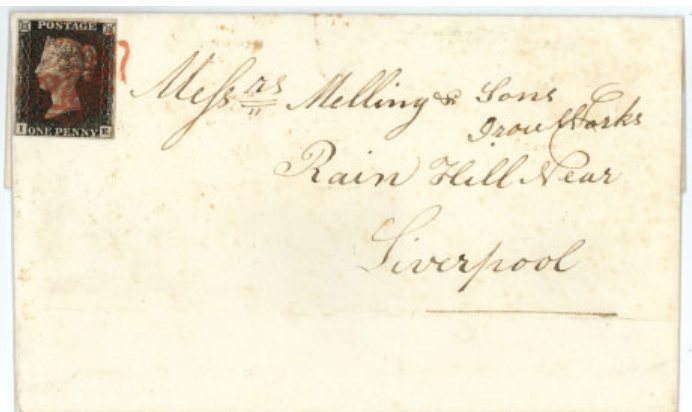 POSTAGE
I ONE PENNY E
Mefs.rs Melling & Sons
Iron Works
Rain Hill Near
Liverpool